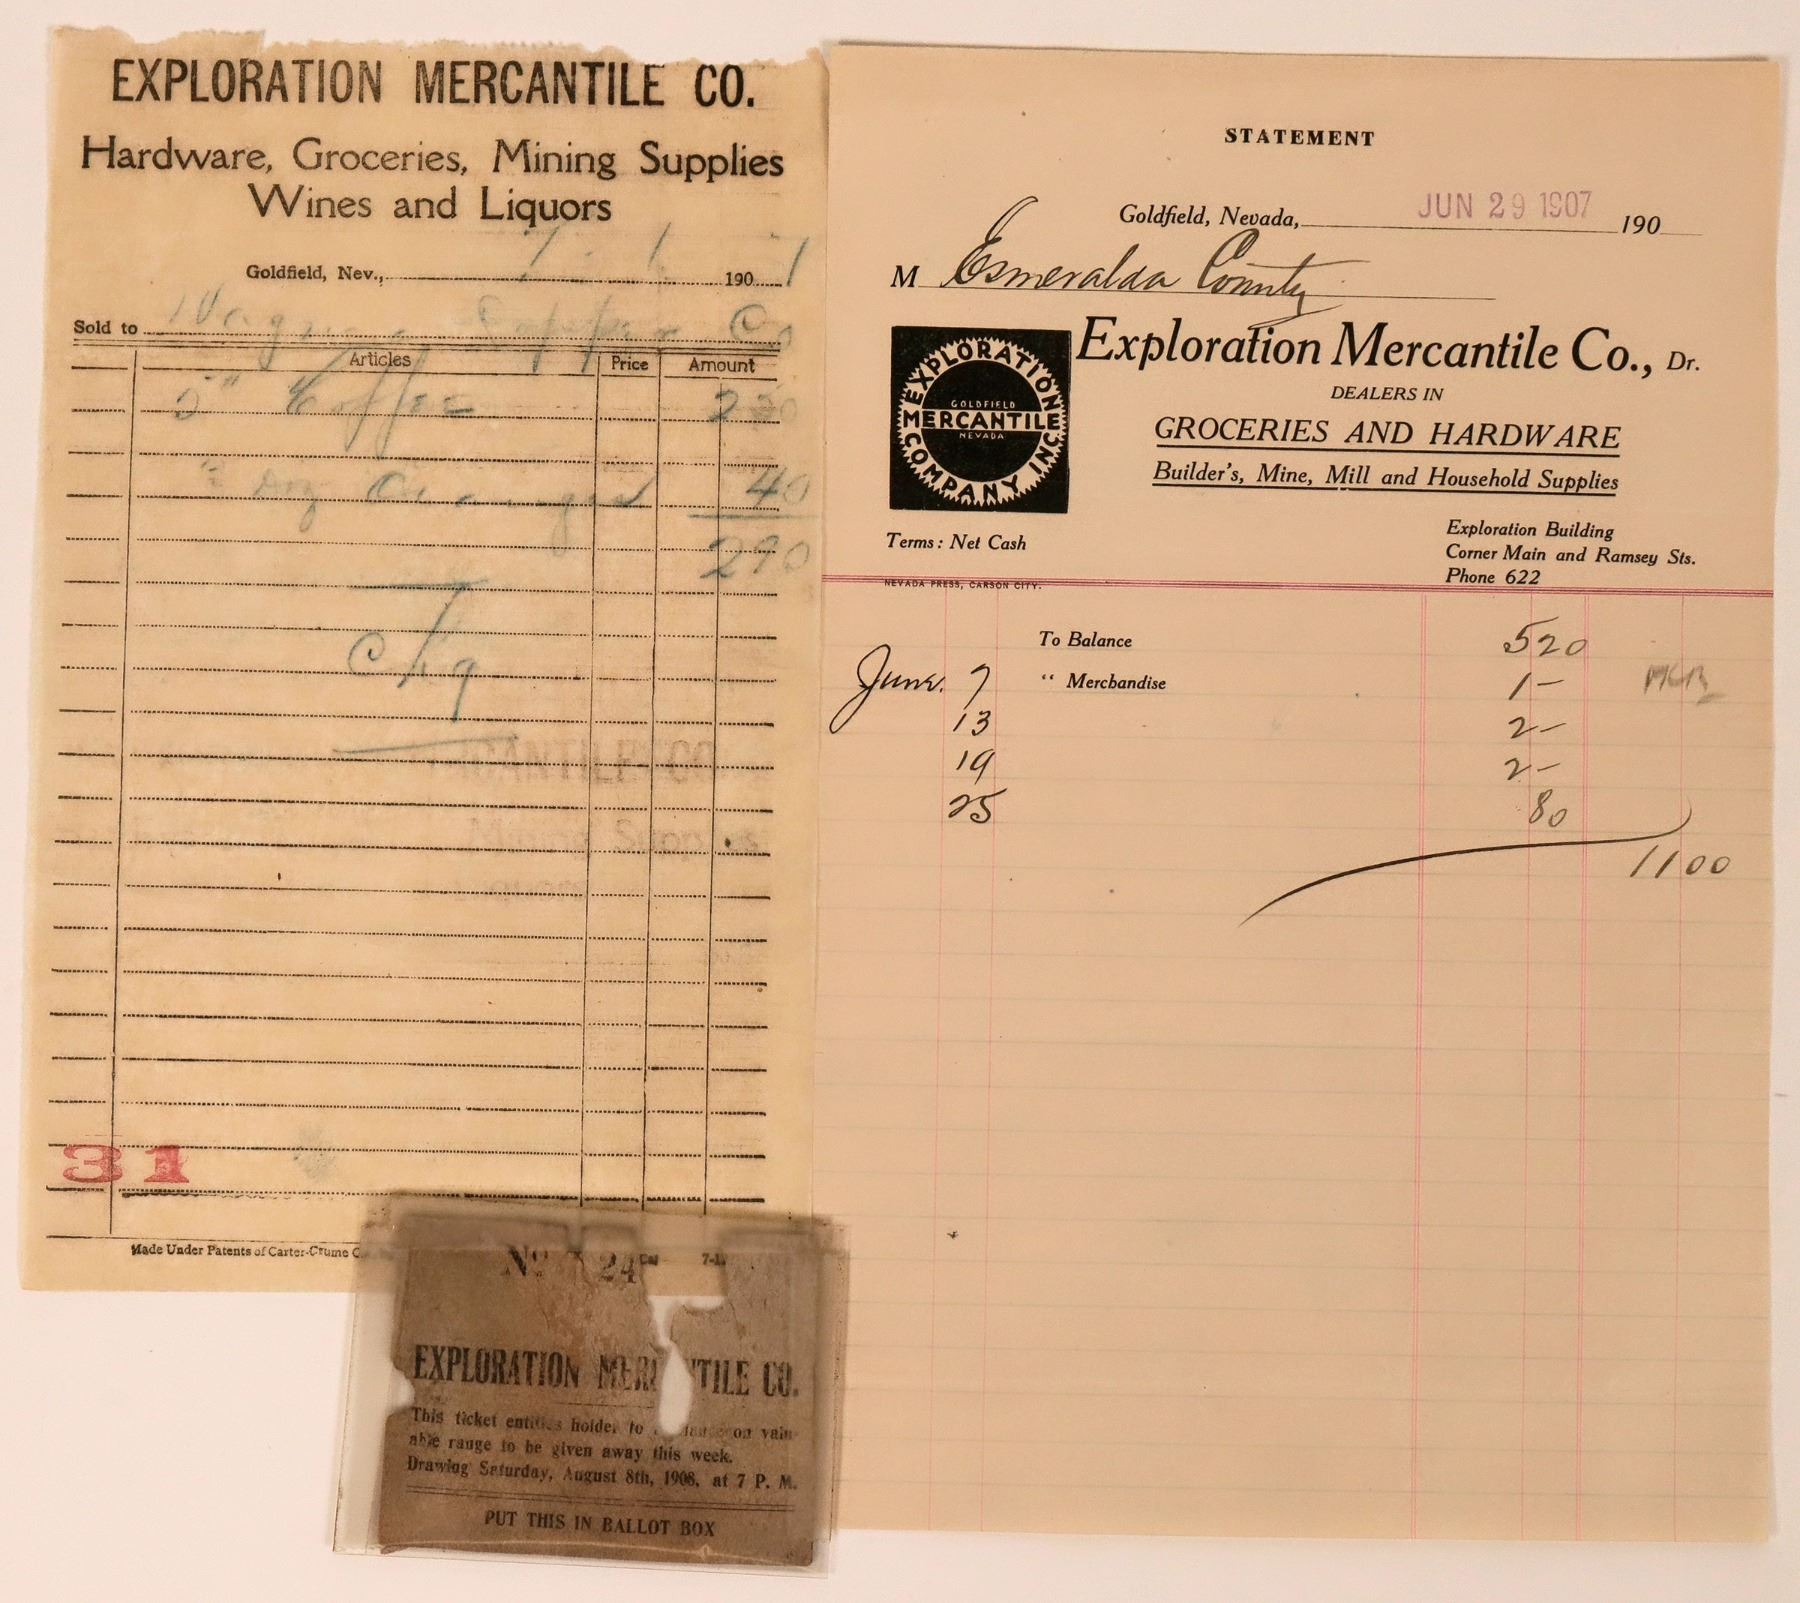 EXPLORATION MERCANTILE CO.
Hardware, Groceries, Mining Supplies
Wines and Liquors
Goldfield, Nev., 190
Sold to Co
Articles Price Amount
5" Coffee 2 50
Doz Oranges 40
2 90
Chg
31
Made Under Patents of Carter-Crume C
STATEMENT
Goldfield, Nevada, JUN 29 1907 190
M Esmeralda County
EXPLORATION MERCANTILE COMPANY INC
GOLDFIELD
NEVADA
Exploration Mercantile Co., Dr.
DEALERS IN
GROCERIES AND HARDWARE
Builder's, Mine, Mill and Household Supplies
Terms: Net Cash
Exploration Building
Corner Main and Ramsey Sts.
Phone 622
NEVADA PRESS, CARSON CITY.
To Balance 5 20
June 7 " Merchandise 1 —
13 2 —
19 2 —
25 80
11 00
No 24
EXPLORATION MERCANTILE CO.
This ticket entitles holder to on valu-
able range to be given away this week.
Drawing Saturday, August 8th, 1908, at 7 P. M.
PUT THIS IN BALLOT BOX